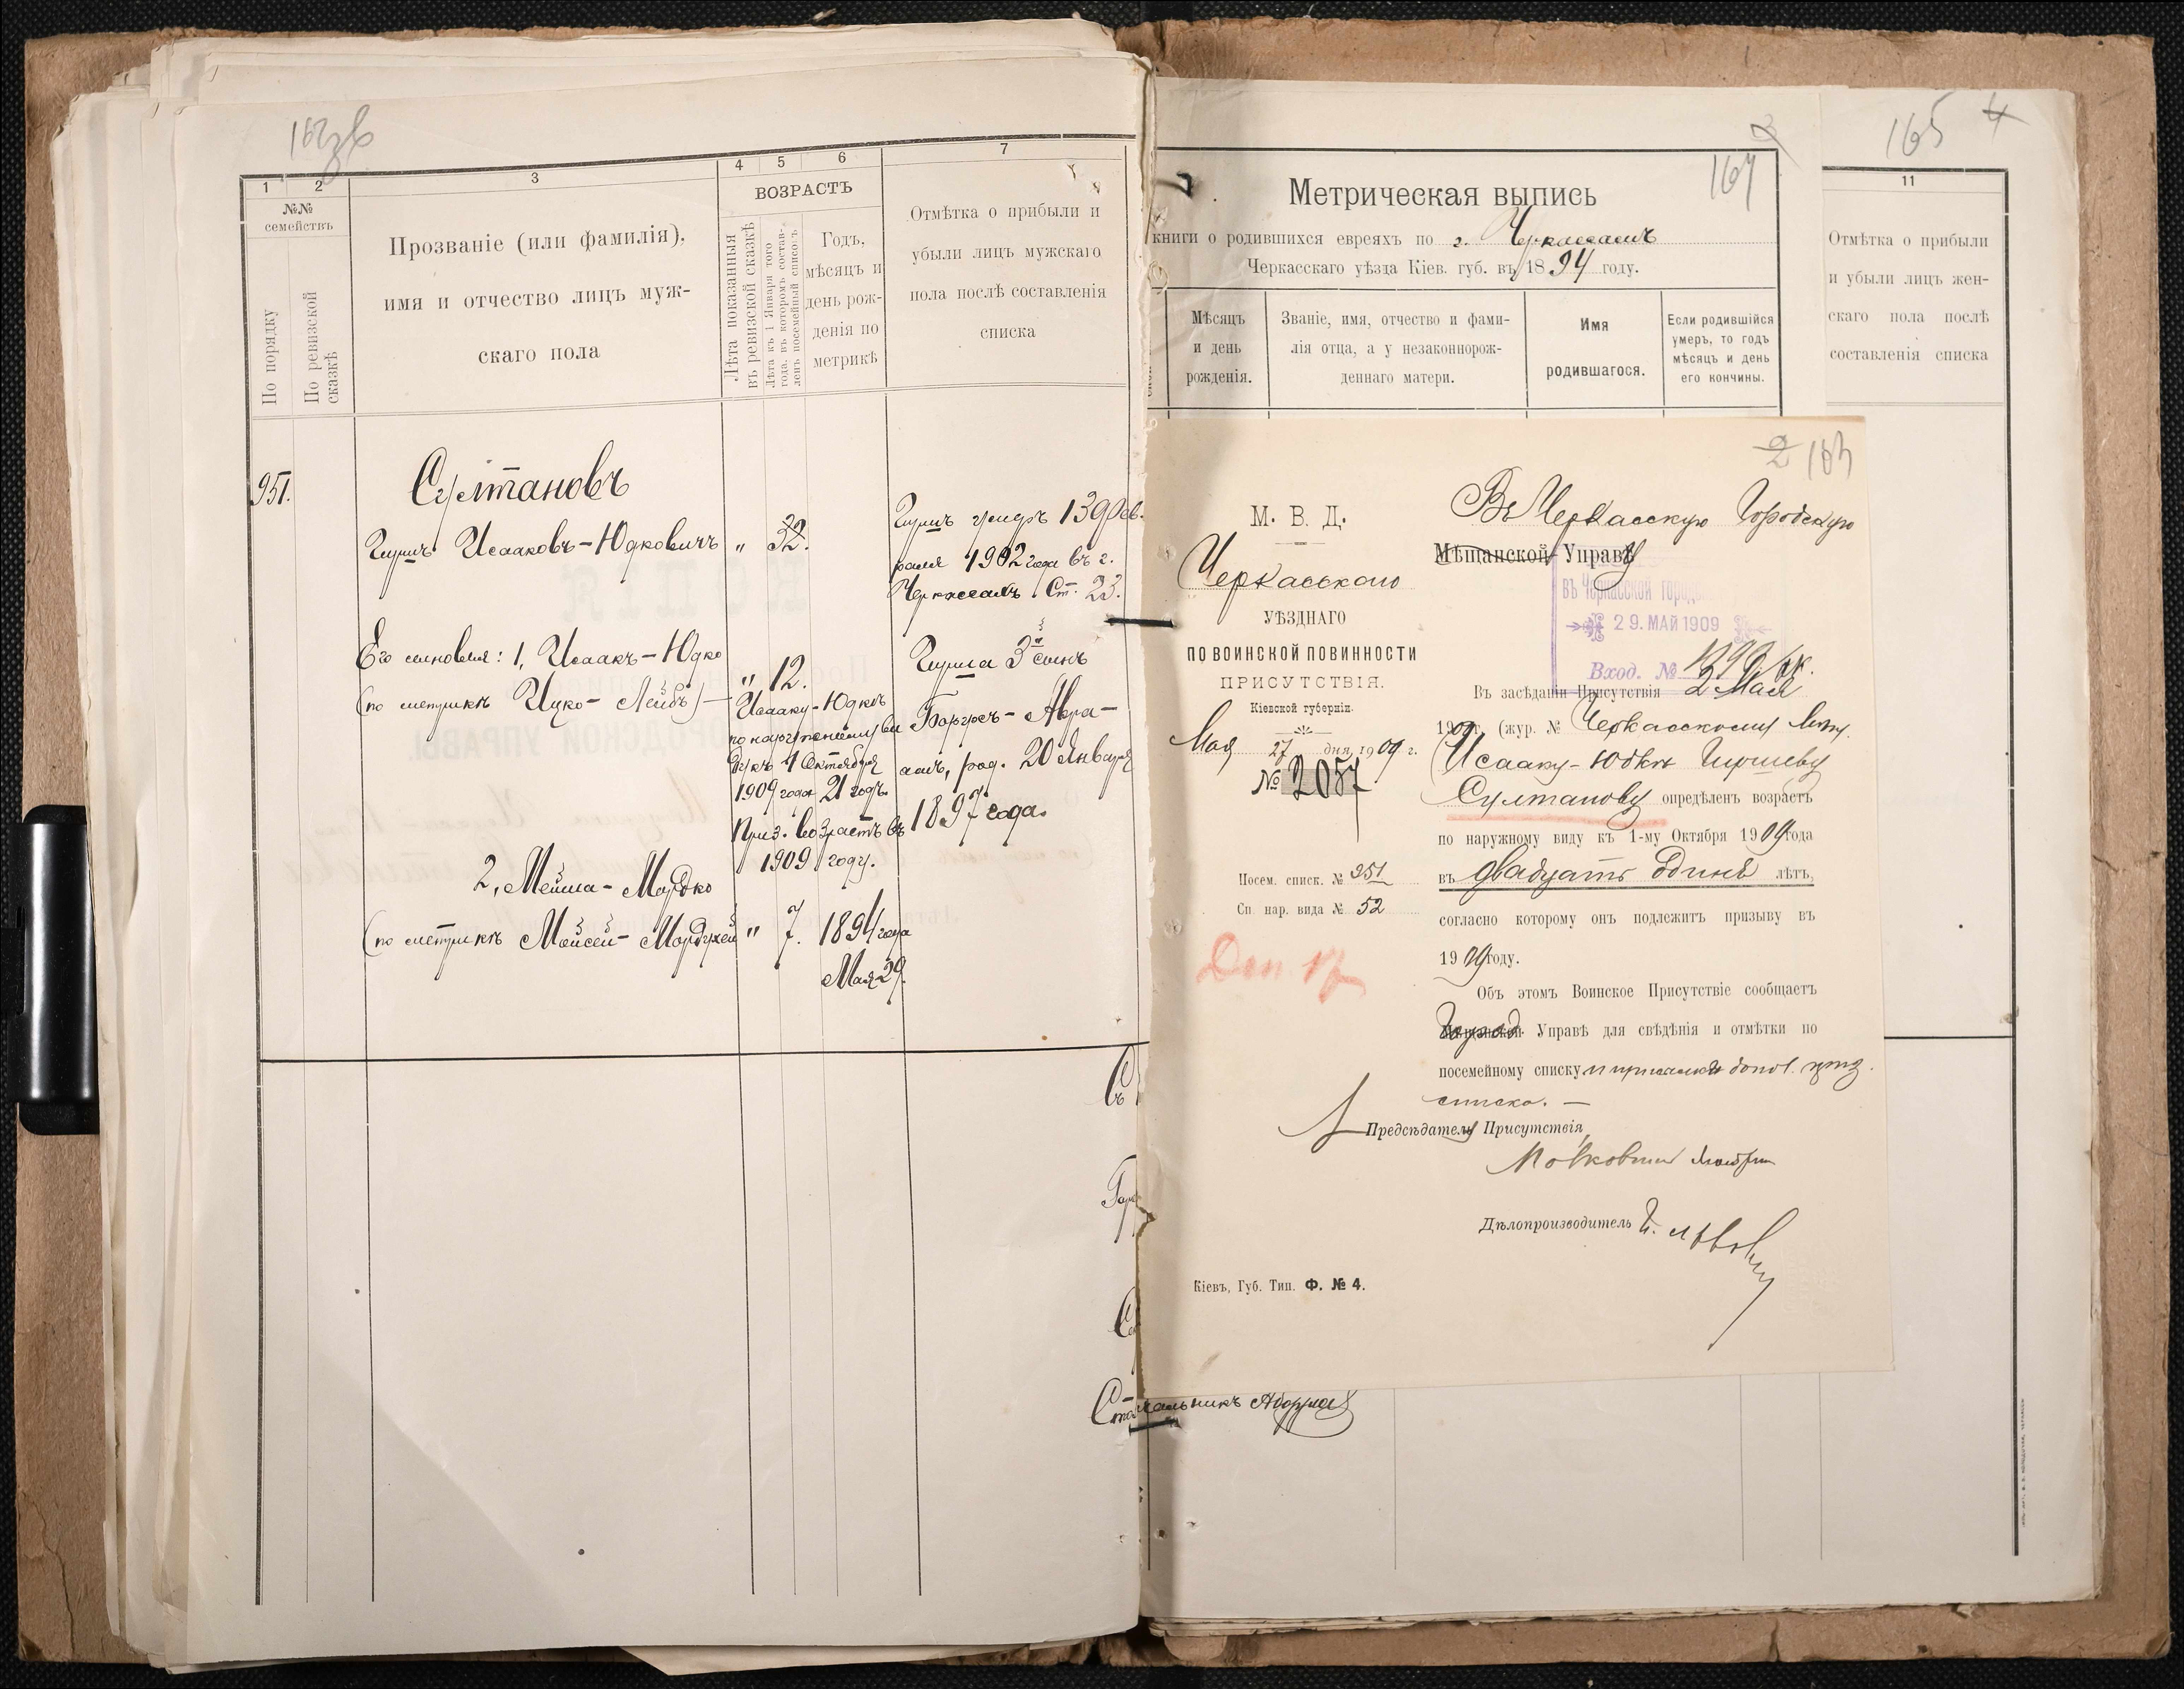 162об
1
2
3
4
5
6
7
№№
семействъ
По порядку
По ревизской сказкѣ
Прозваніе (или фамилія),
имя и отчество лицъ муж-
скаго пола
ВОЗРАСТЪ
Лѣта показанныя
въ ревизской сказкѣ
Лѣта къ 1 Января того
года, въ которомъ состав-
ленъ посемейный списокъ
Годъ,
мѣсяцъ и
день рож-
денія по
метрикѣ
Отмѣтка о прибыли и
убыли лицъ мужскаго
пола послѣ составленія
списка
951.
Султановъ
Гершъ Исааковъ-Юдковичъ " 32.
Гершъ умеръ 13 Фев-
раля 1902 года въ г.
Черкассахъ Ст. 23.
Его сыновья: 1, Исаакъ-Юдко
(по метрикѣ Ицко-Лейбъ) " 12.
Исааку-Юдкѣ
по наружному ви
ду къ 1 Октября
1909 года 21 годъ.
Приз. возрастъ въ
1909 году.
Герша 3й сынъ
Борухъ-Авра-
амъ, род. 20 Января
1897 года.
2, Мейша-Мордко
(по метрикѣ Мойсей-Мордухай " 7. 1894 года
Мая 29.
165 4
11
Отмѣтка о прибыли
и убыли лицъ жен-
скаго пола послѣ
составленія списка
3
164
Метрическая выпись
книги о родившихся евреяхъ по г. Черкассамъ
Черкасскаго уѣзда Кіев. губ. въ 1894 году.
Мѣсяцъ
и день
рожденія.
Званіе, имя, отчество и фами-
лія отца, а у незаконнорож-
деннаго матери.
Имя
родившагося.
Если родившійся
умеръ, то годъ
мѣсяцъ и день
его кончины.
2 163
М. В. Д.
Черкасскаго
УѢЗДНАГО
ПО ВОИНСКОЙ ПОВИННОСТИ
ПРИСУТСТВІЯ.
Кіевской губерніи.
Мая 27 дня 1909 г.
№ 2057
Посем. списк. № 951
Сп нар. вида № 52
Въ Черкасскую Городскую
Мѣщанской Управу
въ Черкасской городс
29. МАЙ 1909
Вход. №
Въ засѣданіи Присутствія 2 Мая
1909 г. (жур. № Черкасскому мѣщ.
Исааку-Юдкѣ Гершеву
Султанову опредѣленъ возрастъ
по наружному виду къ 1-му Октября 1909 года
въ двадцать одинъ лѣтъ,
согласно которому онъ подлежитъ призыву въ
1909 году.
Объ этомъ Воинское Присутствіе сообщаетъ
Город. Управѣ для свѣдѣнія и отмѣтки по
посемейному списку и присылки допол. приз.
списка. —
Предсѣдатель Присутствія,
Дѣлопроизводитель
Кіевъ, Губ. Тип. Ф. № 4.